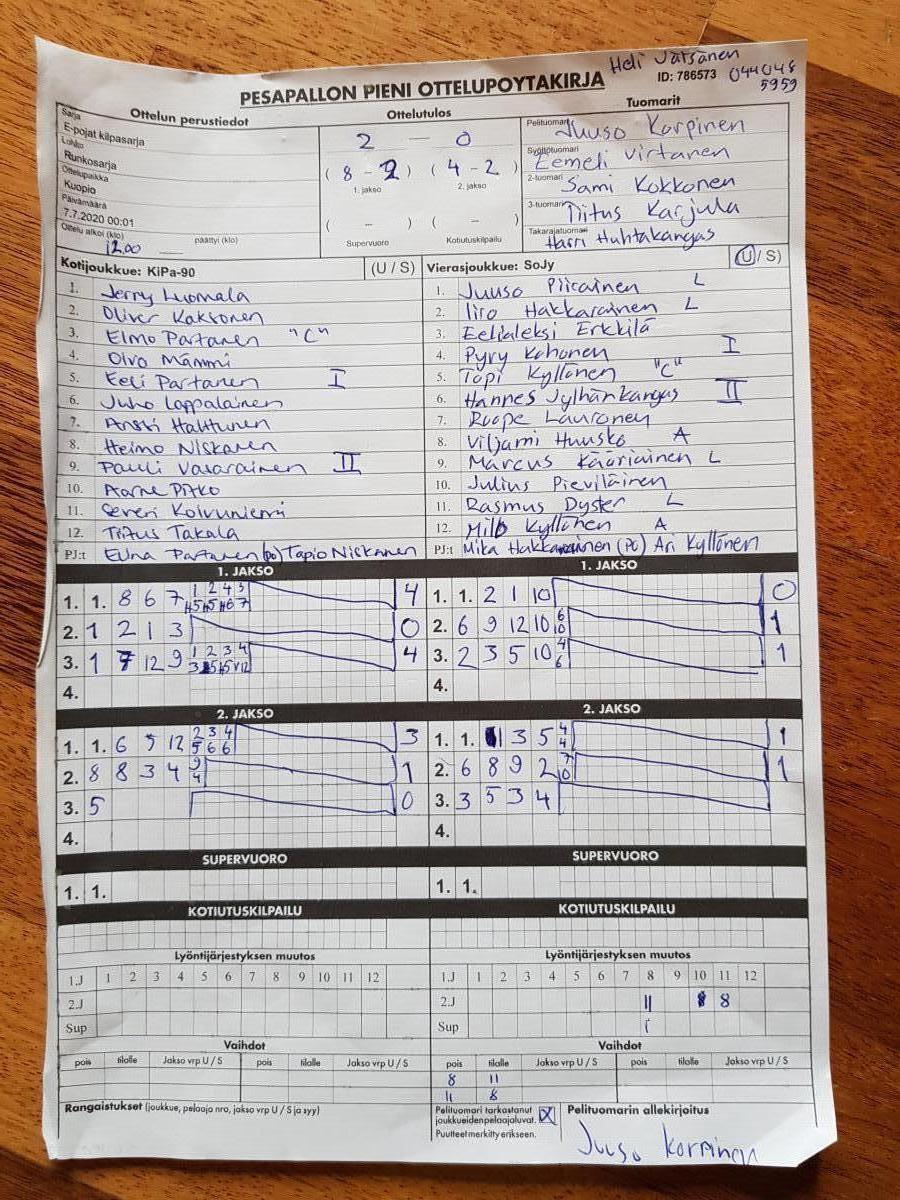 Heli Jatsänen
PESAPALLON PIENI OTTELUPOYTAKIRJA
ID: 786573
044048
5959
Ottelun perustiedot
Ottelutulos
Tuomarit
Sarja
E-pojat kilpasarja
Lohko
Runkosarja
Ottelupaikka
Kuopio
Päivämäärä
7.7.2020 00:01
Ottelu alkoi (klo) 12.00 päättyi (klo)
2 — 0
( 8 - 2 ) ( 4 - 2 )
1. jakso 2. jakso
( – ) ( – )
Supervuoro Kotiutuskilpailu
Pelituomari Juuso Korpinen
Syöttötuomari Eemeli Virtanen
2-tuomari Sami Kokkonen
3-tuomari Tiitus Karjula
Takarajatuomari Harri Huhtakangas
Kotijoukkue: KiPa-90 (U / S)
1. Jerry Luomala
2. Oliver Kaksonen
3. Elmo Partanen "C"
4. Oiva Mämmi
5. Eeli Partanen I
6. Juho Lappalainen
7. Anssi Halttunen
8. Heimo Niskanen
9. Pauli Vatarainen II
10. Aarne Pitko
11. Severi Koivuniemi
12. Tiitus Takala
PJ:t Elina Partanen (po) Tapio Niskanen
Vierasjoukkue: SoJy (U / S)
1. Juuso Piirainen L
2. Iiro Hakkarainen L
3. Eelialeksi Erkkilä
4. Pyry Kohonen I
5. Topi Kyllönen "C"
6. Hannes Jylhänkangas II
7. Roope Lauronen
8. Viljami Huusko A
9. Marcus Kääriäinen L
10. Julius Pieviläinen
11. Rasmus Dyster L
12. Milo Kyllönen A
PJ:t Mika Hakkarainen (PO) Ari Kyllönen
1. JAKSO
1. 1. 8 6 7 1 2 4 5 4
2. 1 2 1 3 0
3. 1 7 12 9 1 2 3 4 4
4.
1. JAKSO
1. 1. 2 1 10 0
2. 6 9 12 10 6 10 1
3. 2 3 5 10 4 6 1
4.
2. JAKSO
1. 1. 6 5 12 2 3 4 5 6 6 3
2. 8 8 3 4 9 4 1
3. 5 0
4.
2. JAKSO
1. 1. 1 3 5 4 4 1
2. 6 8 9 2 7 10 1
3. 3 5 3 4
4.
SUPERVUORO
1. 1.
SUPERVUORO
1. 1.
KOTIUTUSKILPAILU
KOTIUTUSKILPAILU
Lyöntijärjestyksen muutos
1.J 1 2 3 4 5 6 7 8 9 10 11 12
2.J
Sup
Lyöntijärjestyksen muutos
1.J 1 2 3 4 5 6 7 8 9 10 11 12
2.J 11 8
Sup
Vaihdot
pois tilalle Jakso vrp U / S pois tilalle Jakso vrp U / S
Vaihdot
pois tilalle Jakso vrp U / S pois tilalle Jakso vrp U / S
8 11
11 8
Rangaistukset (joukkue, pelaaja nro, jakso vrp U / S ja syy)
Pelituomari tarkastanut
joukkueiden pelaajaluvat. X
Puutteet merkitty erikseen.
Pelituomarin allekirjoitus
Juuso Korpinen